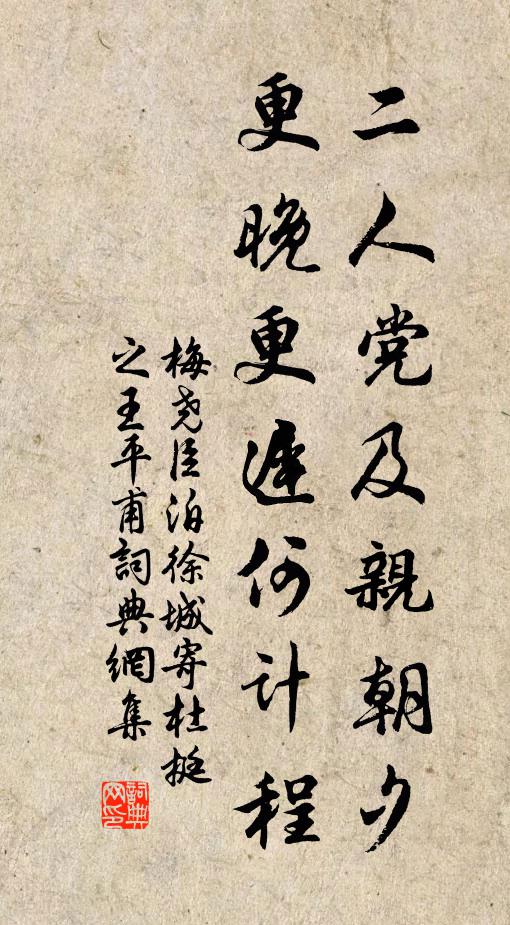 二人党及親朝夕
更晚更遲何計程
梅尧臣泊徐城寄杜挺
之王平甫詞典網集
詞典
网印